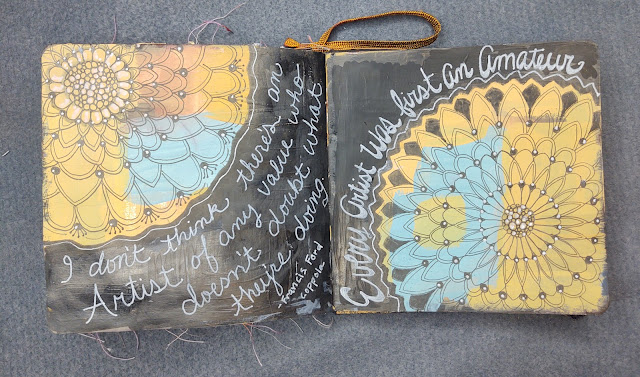 I don't think there's an
Artist of any value who
doesn't doubt what
they're doing
-Francis Ford
Coppola
Every Artist Was first an Amateur